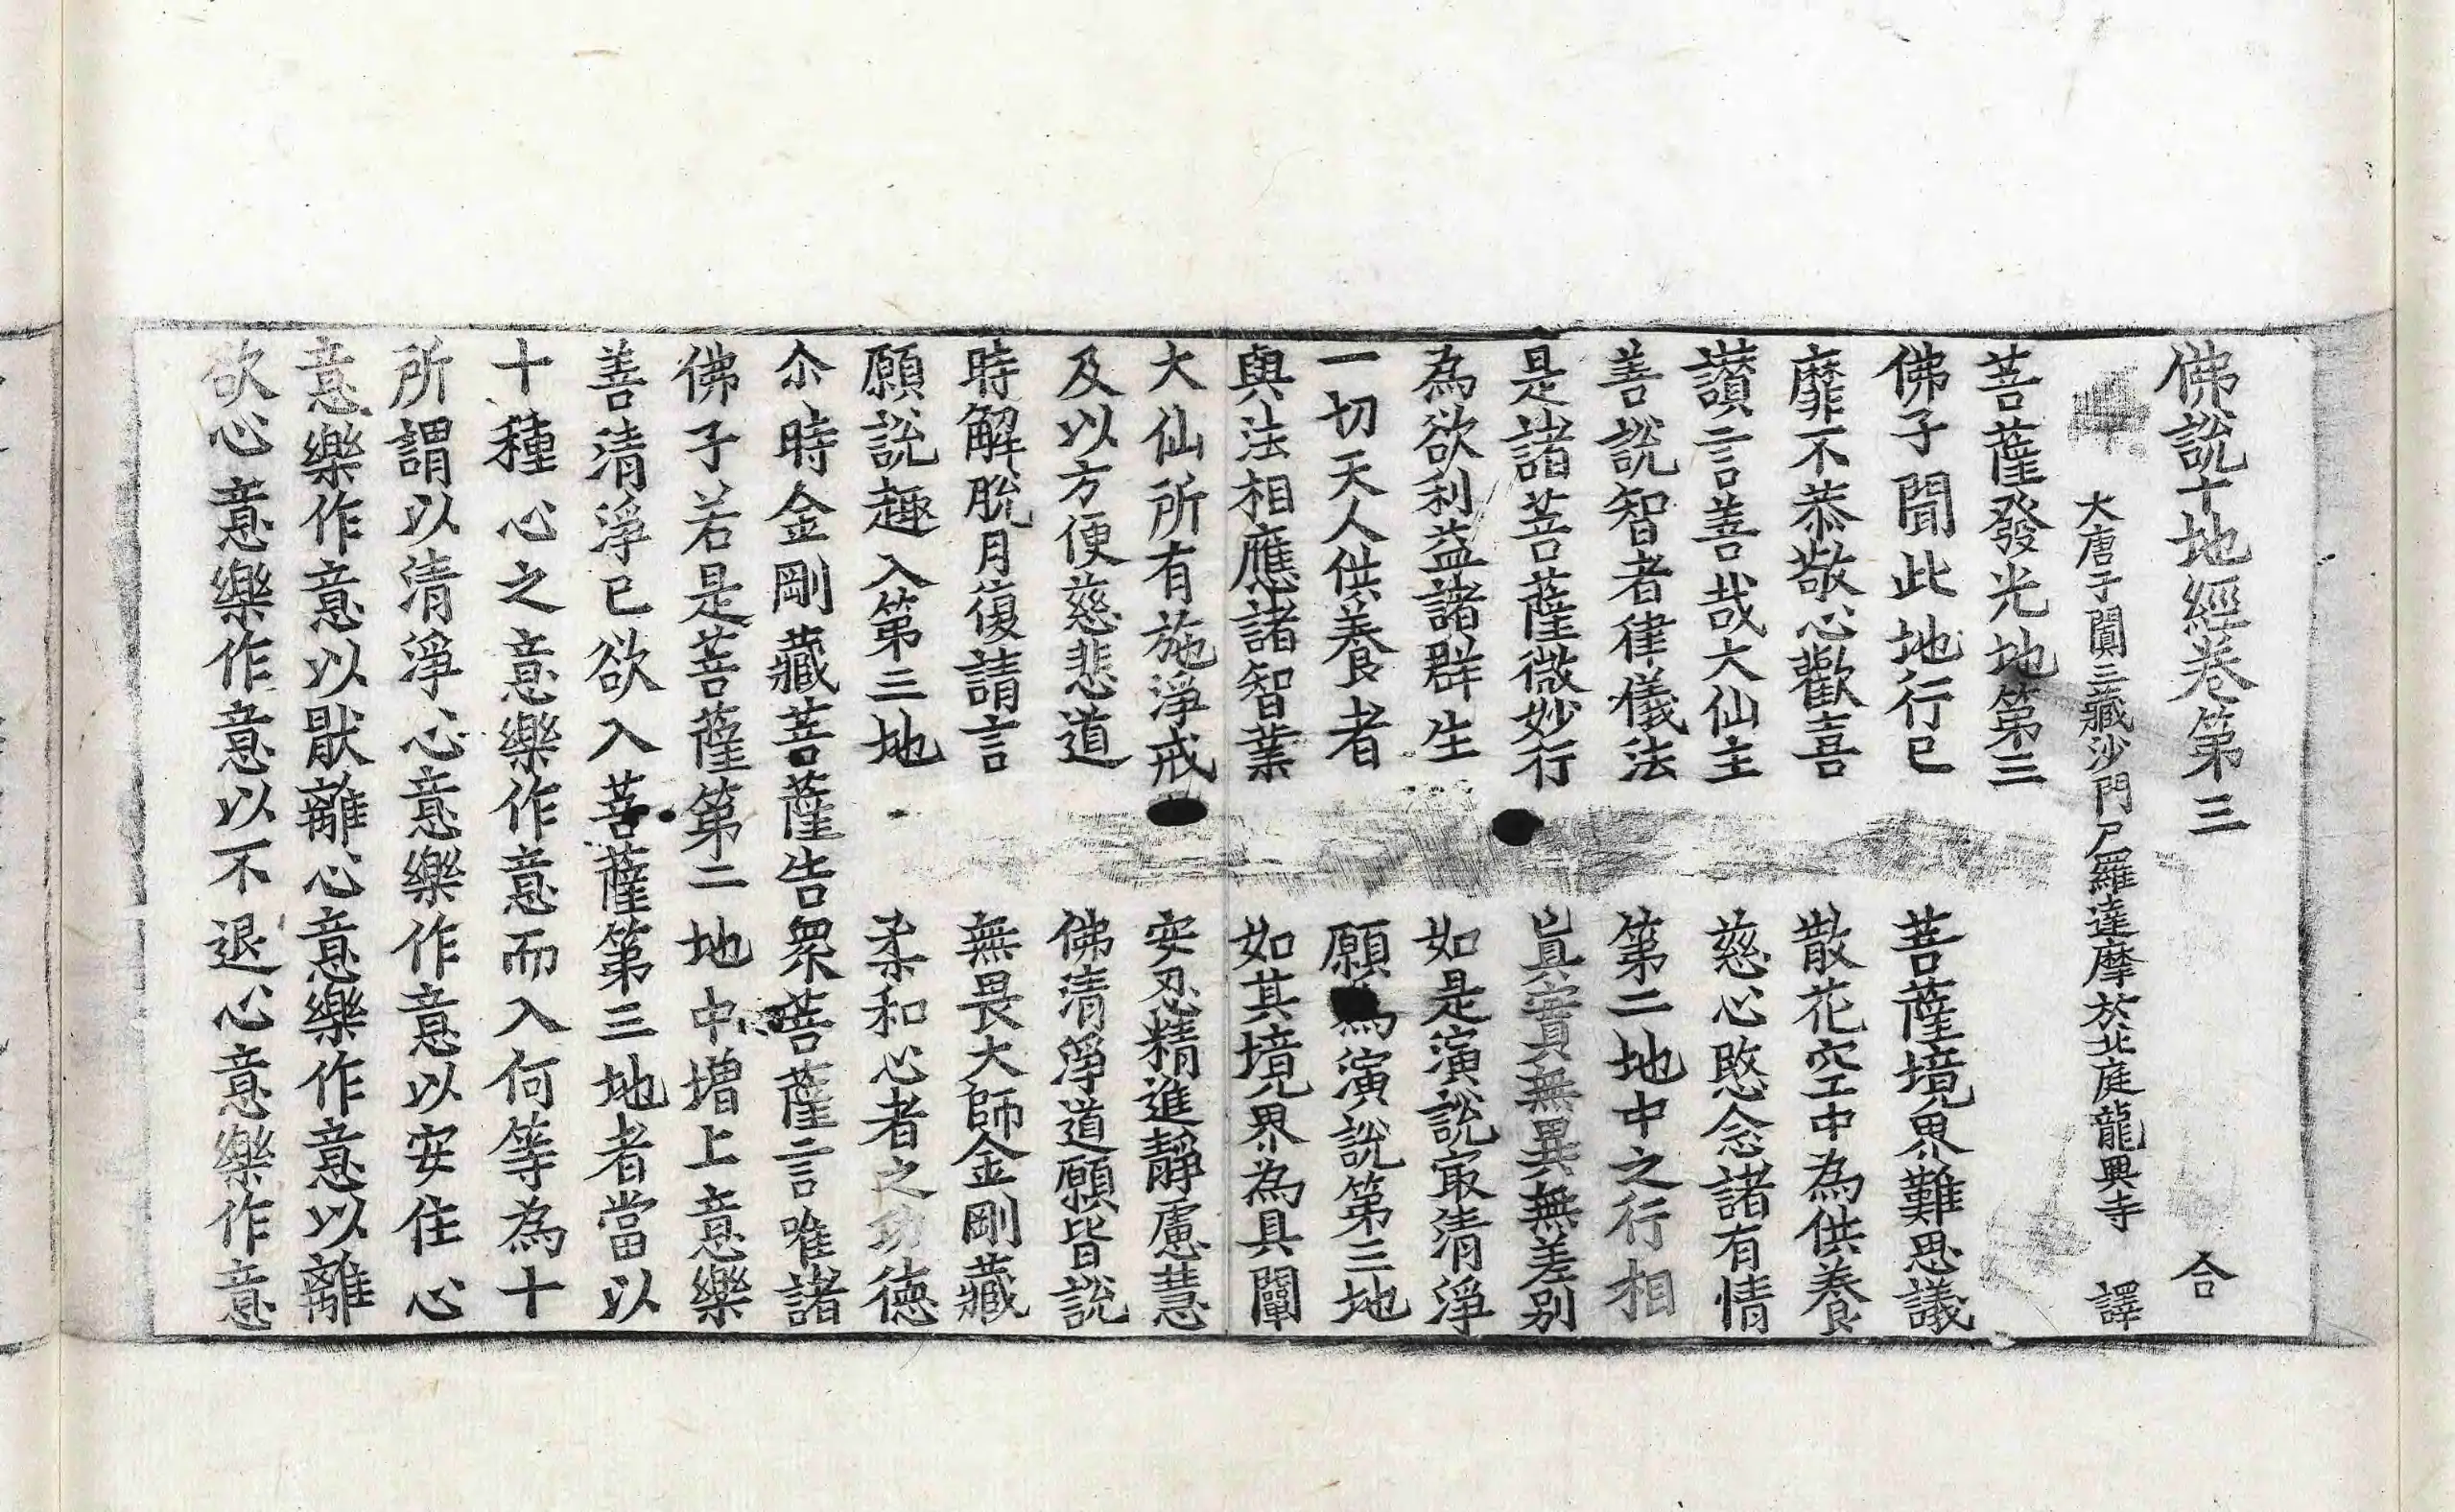 佛說十地經卷第三 合
大唐于闐三藏沙門尸羅達摩於北庭龍興寺 譯
菩薩發光地第三
佛子聞此地行已 菩薩境界難思議
靡不恭敬心歡喜 散花空中為供養
讚言善哉大仙主 慈心愍念諸有情
善說智者律儀法 第二地中之行相
是諸菩薩微妙行 真實無異無差別
為欲利益諸群生 如是演說冣清淨
一切天人供養者 願為演說第三地
與法相應諸智業 如其境界為具闡
大仙所有施淨戒 安忍精進靜慮慧
及以方便慈悲道 佛清淨道願皆說
時解脫月復請言 無畏大師金剛藏
願說趣入第三地 柔和心者之功德
尒時金剛藏菩薩告衆菩薩言唯諸
佛子若是菩薩第二地中增上意樂
善清淨已欲入菩薩第三地者當以
十種心之意樂作意而入何等為十
所謂以清淨心意樂作意以安住心
意樂作意以猒離心意樂作意以離
欲心意樂作意以不退心意樂作意